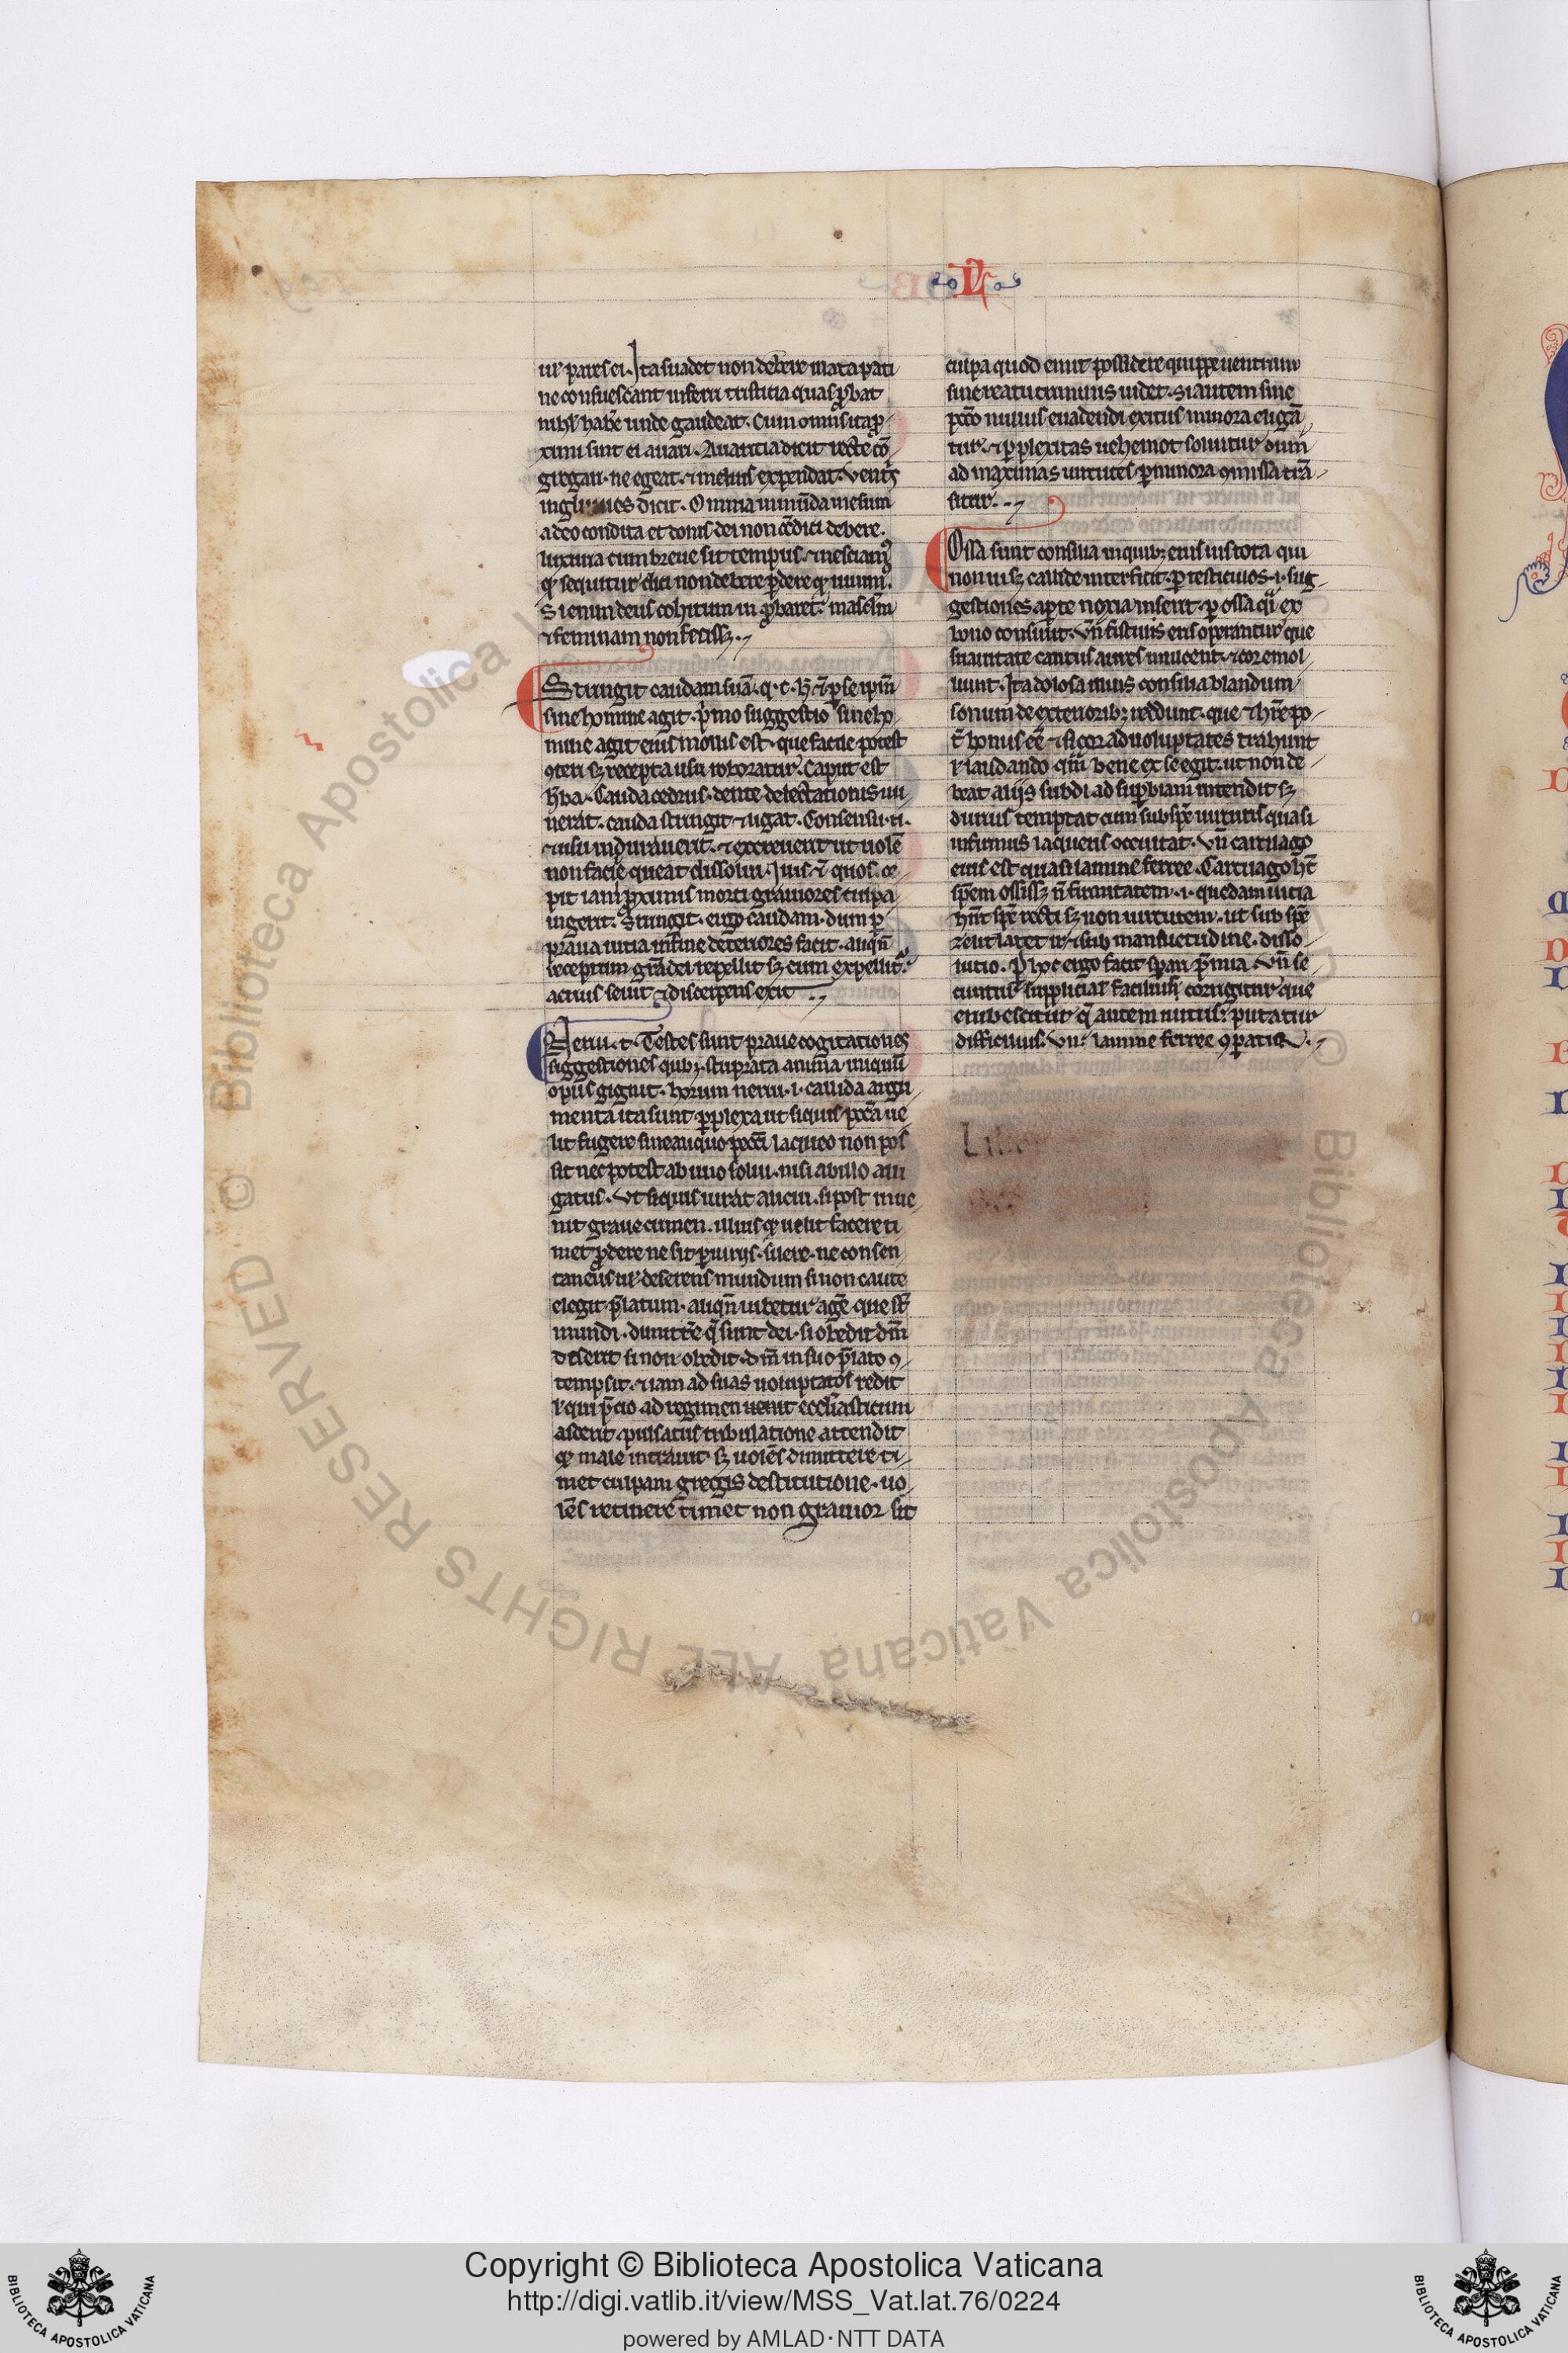 L
ur pares ei. Ita suadet non debere mala pati
ne consuescant inferri tristitia quasi ꝓbat
nihil habere unde gaudeat. Cum omnis ita ꝓ-
ximi sint ei auari. Auaritia dicit recte cō
gregari. ne egeat. ⁊ melius expendat. Uentris
ingluuies dicit. Omnia munda inesum
a deo condita et donis dei non cōdici debere.
luxuria cum breue sit tempus. ⁊ nesciamꝰ
qd sequitur dici non debere ꝑdere qd iuuat.
Si enim deus cohitum inprobaret. masclm̄
⁊ feminam non fecissꝫ.
Stringit caudam suā. q. c. h̄ ē ꝑ se ip̄m
sine homine agit. p̄mo suggestio sine ho-
mine agit eius mollis est. que facile potest
ꝯteri sꝫ recepta usu roboratur. Caput est
h̄ba. Cauda cedrus. dente delectationis uu
nerat. cauda stringit ⁊ ligat. Consensu. ti.
⁊ usu indurauerit. ⁊ excreuerit ut uolē
non facile queat dissolui. quos ce
pit iam ꝓximis morti grauiores culpa
ingerit. Stringit. ergo caudam. dum ꝑ
praua initia in fine deteriores facit. aliqn̄
receptum grā dei repellit sꝫ cum expellit᷑
acrius seuit ⁊ discerpens exit
Nerui. t. Testes sunt praue cogitationes
suggestiones qubꝫ. stuprata anima iniquū
opus gignit. horum nerui. i. callida argu
menta ita sunt ꝑplexa ut siquis pccā ue
lit fugere sine aliquo pccī laqueo non pos
sit nec potest ab uno solui. nisi ab illo alli
gatus. Ut siquis iurat alicui. si post inue
nit graue crimen. illius qd uelit facere ti
met ꝓdere ne sit ꝑiurus. silere. ne consen
taneus ur̄ deserens mundum si non caute
elegit p̄latum. aliqn̄ iubetur agē que st̄
mundi. dimittē q̄ sunt dei. si obedit dm̄
deserit si non obedit. dm̄ in suo p̄lato ꝯ-
tempsit. ⁊ iam ad suas uoluptates redit
ł qui p̄cio ad regimen uenit ecclesiasticum
asderit. pulsatus tribulatione attendit
qd male intrauit sꝫ uolēs dimittere ti-
met culpam gregis destitutione. uo
lēs retinere timet non grauior sit
culpa quod emit possidere quippe uentrum
sine reatu criminis uidet. si autem sine
pccō nullus euadendi exitus minora eligā
tur. ⁊ ꝑplexitas uehemot soluitur dum
ad maximas uirtutes ꝑ minora ꝯmissa trā-
situr.
Ossa sunt consilia in quibꝫ eius uis tota qui
non ui sꝫ callide interficit. ꝑ testiculos. i. sug-
gestiones aperte noxia inserit. ꝑ ossa qͥ ex
bono consulit. Vn̄ fistulis eris oparantur que
suauitate cantus aures mulcent. ⁊ cor emol
liunt. Ita dolosa illius consilia blandum
sonum de exterioribꝫ reddunt. que ⁊ hr̄e po-
t̄ bonus eē ⁊ sic cor ad uoluptates trahunt
ł laudando qm̄ bene ex se egit. ut non de-
beat aliis subdi ad supbiam intendit sꝫ
durius temptat cum sub spē uirtutis quasi
infirmus laqueus occultat. Vn̄ cartilago
eius est quasi lamine ferree. Cartilago ht̄
spem ossissꝫ n̄ firmitatem. i. quedam uitia
hn̄t spē recti sꝫ non uirtutem. ut sub spē
zeli latet ir̄ ⁊ sub mansuetudine. disso-
lutio. ꝑ hoc ergo facit sperari p̄mia. Vn̄ se
curitur suppliciar̄ facilius corrigitur que
erubescitur q̄ autem uirtus putatur
difficilius. Vn̄: lamine ferree ꝯparatur.
Lib
Copyright © Biblioteca Apostolica Vaticana
http://digi.vatlib.it/view/MSS_Vat.lat.76/0224
powered by AMLAD·NTT DATA